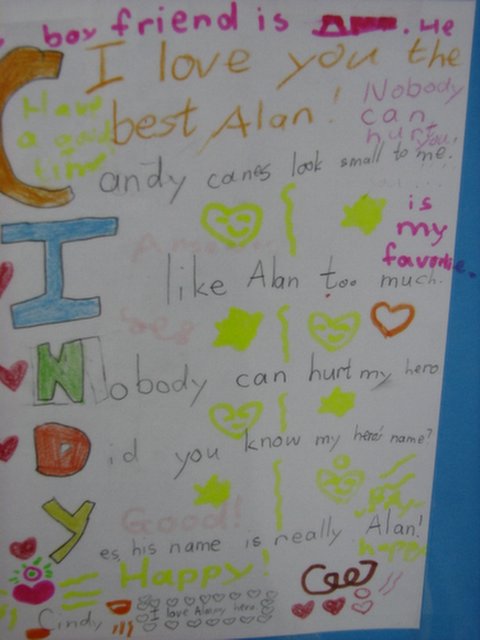 boy friend is . He
I love you the
best Alan!
Nobody
can
hurt you!
Have
a good
time
Candy canes look small to me.
is
my
favorite.
I like Alan too much.
Nobody can hurt my hero
Did you know my hero's name?
Good!
Yes, his name is really Alan!
happy
Happy!
Cindy
I love Alan my hero